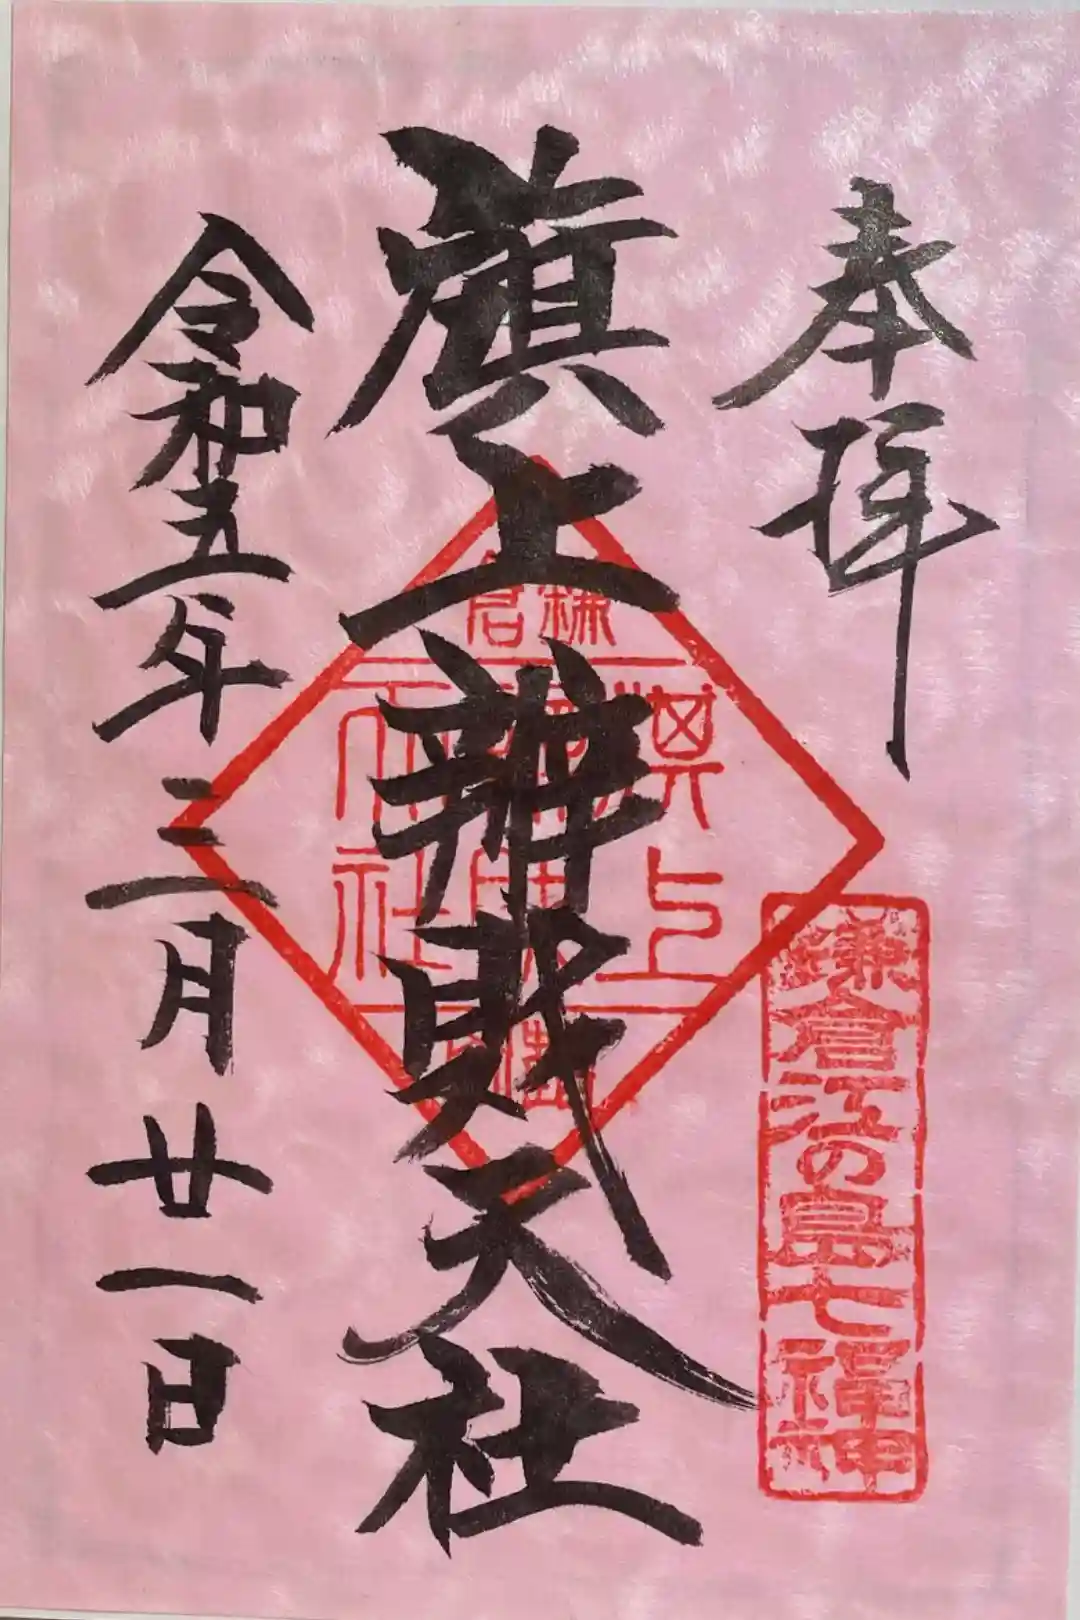 奉拝
鎌倉江の島七福神
旗上辨財天社
鎌倉
旗上
天社
令和五年三月廿一日